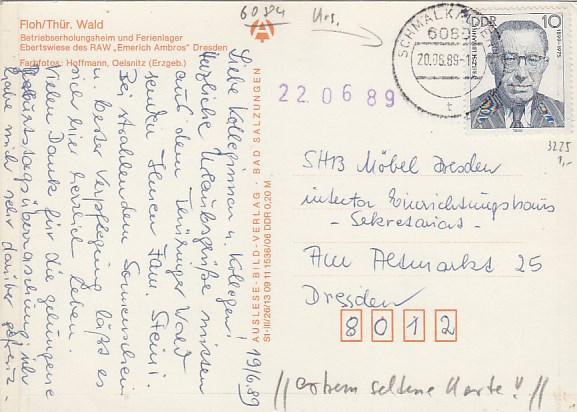 Floh/Thür. Wald
Betriebserholungsheim und Ferienlager
Ebertswiese des RAW „Emerich Ambros" Dresden
Farbfotos: Hoffmann, Oelsnitz (Erzgeb.)
6084
Urs.
SCHMALKALDEN
6080
20.06.89-1
t
DDR
10
1899-1975
22 06 89
3225
1,-
Liebe Kolleginnen u. Kollegen!
19/6.89
Herzliche Urlaubsgrüße
aus dem Thüringer Wald
senden Ihnen Fam.
Bei strahlendem Sonnenschein
u. bester Verpflegung läßt es
sich hier herrlich leben.
Vielen Dank für die gelungene
Geburtstagsüberraschung, ich
habe mich sehr darüber gefreut.
AUSLESE-BILD-VERLAG · BAD SALZUNGEN
St-III/26/13 09 11 1536/06 DDR 0,20 M
SHB Möbel Dresden
intecta Einrichtungshaus
- Sekretariat -
Am Altmarkt 25
Dresden
8012
//extrem seltene Karte!//